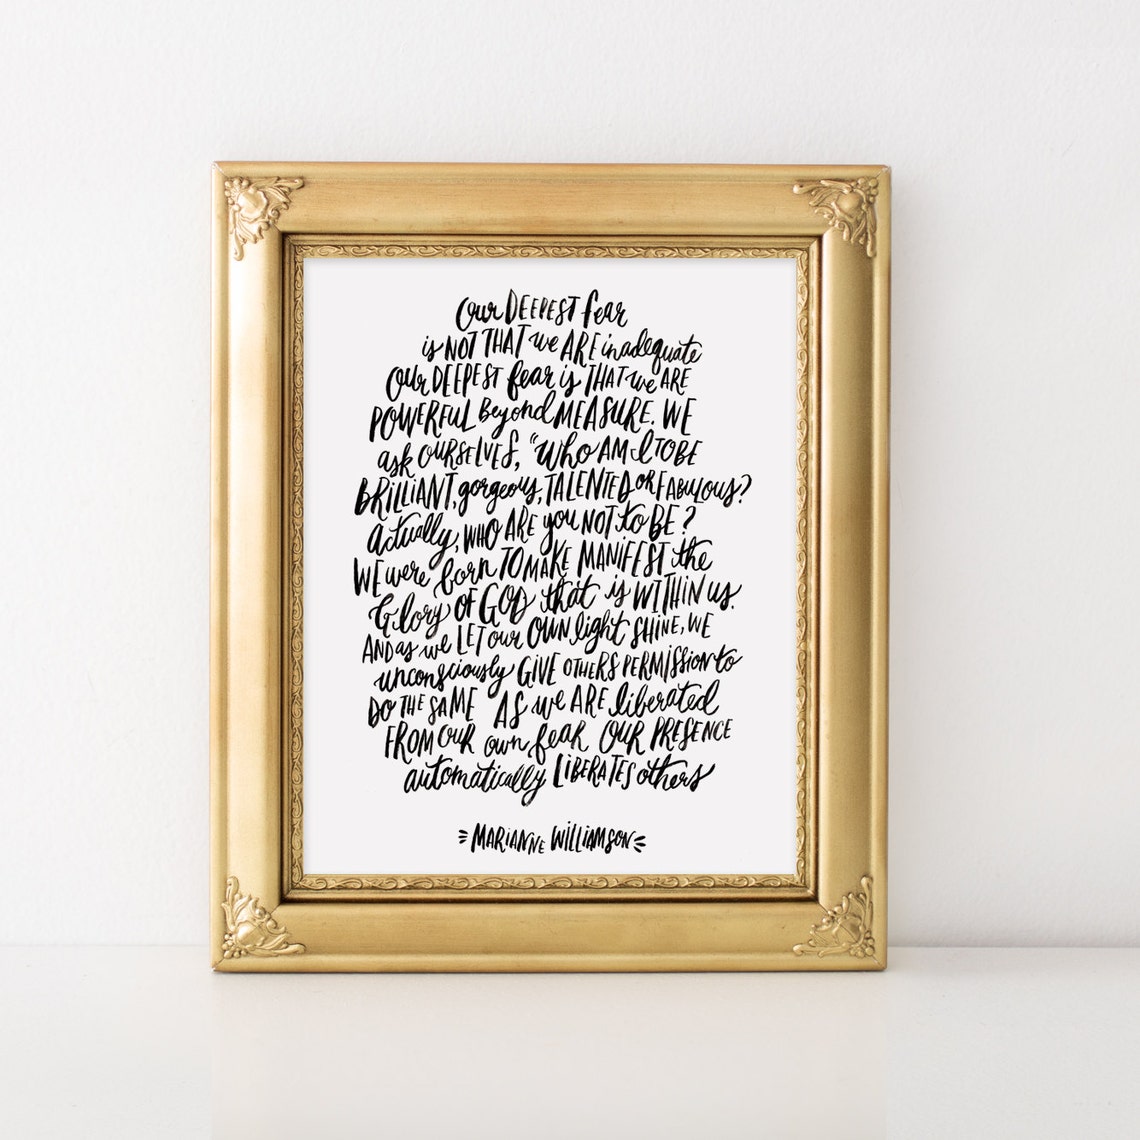 Our DEEPEST fear
is NOT THAT we ARE inadequate
Our DEEPEST fear is THAT we ARE
POWERFUL Beyond MEASURE. WE
ask OURSELVES, "Who AM I TO BE
BRILLIANT, gorgeous, TALENTED OR FABULOUS?
Actually, WHO ARE you NOT to BE?
WE were born TO MAKE MANIFEST the
Glory OF GOD that is WITHIN us.
AND as we LET our OWN light SHINE, WE
unconsciously GIVE OTHERS PERMISSION to
DO THE SAME AS we ARE liberated
FROM our own fear OUR PRESENCE
automatically LIBERATES others
MARIANNE WILLIAMSON